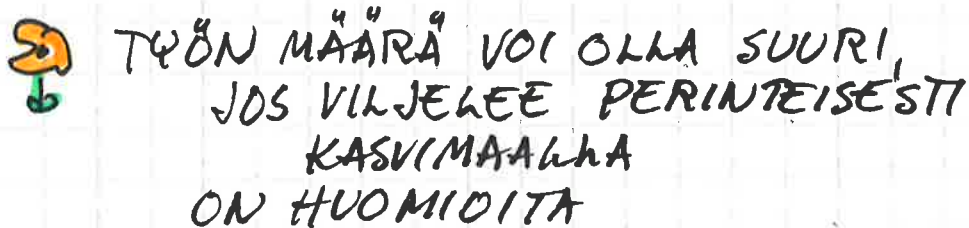 TYÖN MÄÄRÄ VOI OLLA SUURI,
JOS VILJELEE PERINTEISESTI
KASVIMAALLA
ON HUOMIOITA